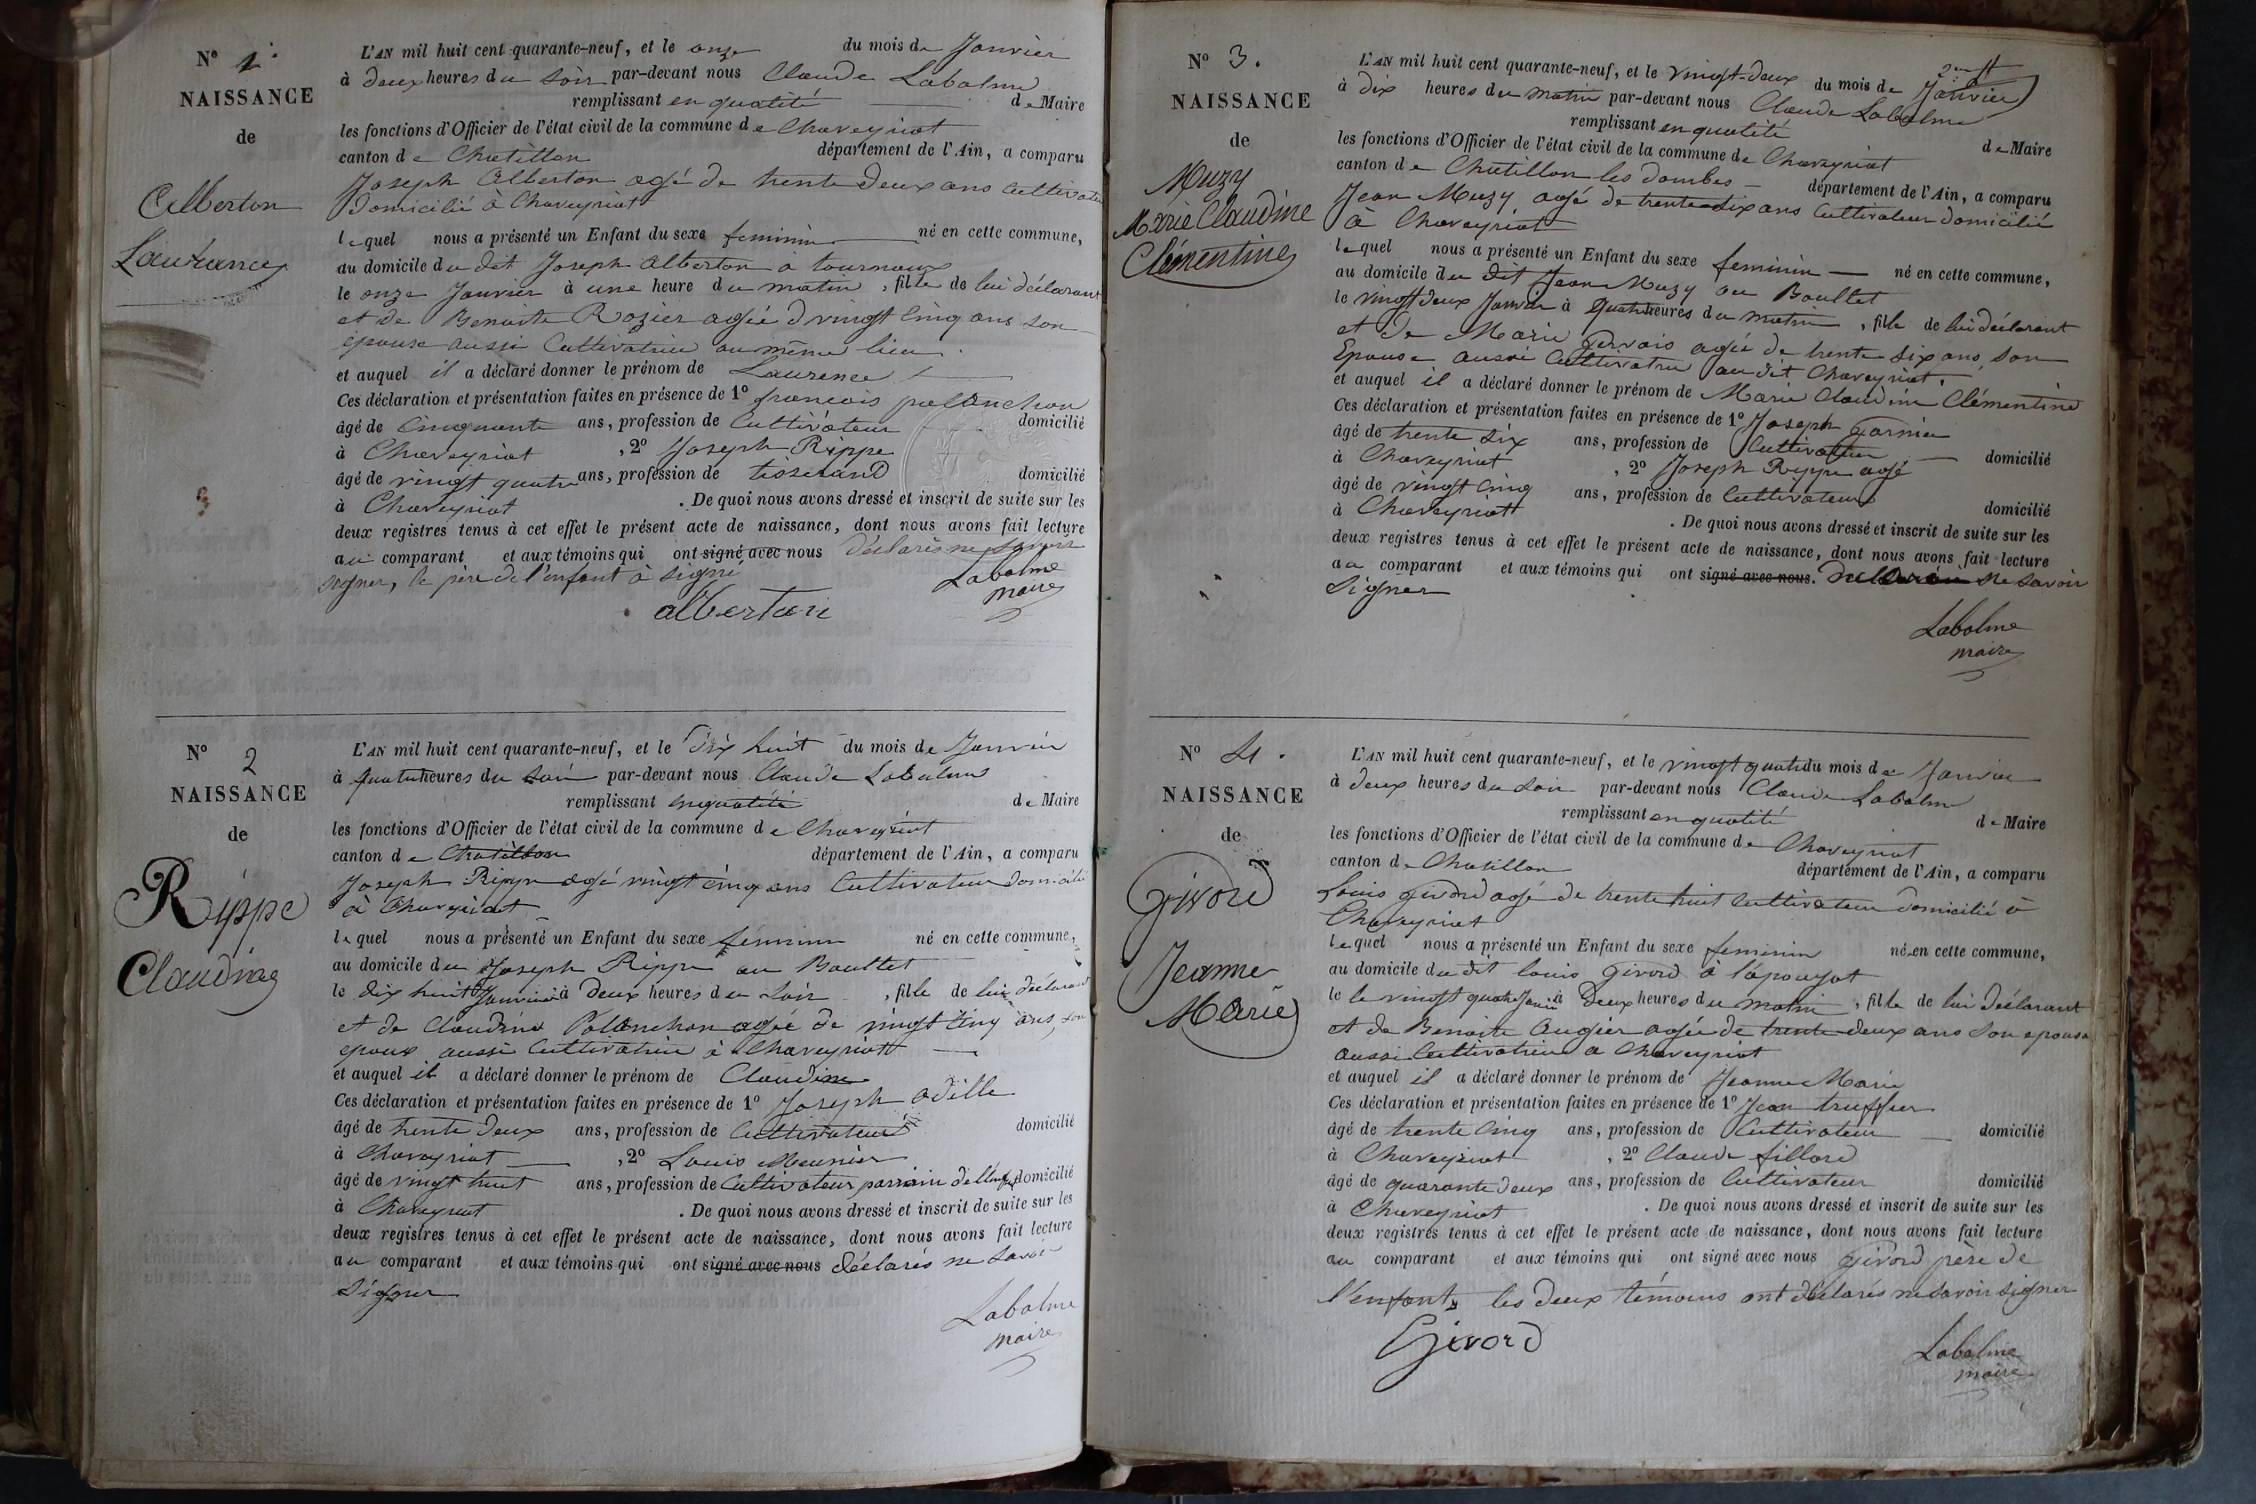 N° 1.
NAISSANCE
de
Alberton
Laurance
L'AN mil huit cent quarante-neuf, et le onze du mois de Janvier
à deux heures du soir par-devant nous Claude Labalme
remplissant en qualité de Maire
les fonctions d'Officier de l'état civil de la commune de Chaveyriat
canton de Chatillon département de l'Ain, a comparu
Joseph Alberton agé de trente deux ans cultivateur
domicilié à Chaveyriat
lequel nous a présenté un Enfant du sexe feminin né en cette commune,
au domicile du dit Joseph Alberton à tournoux
le onze Janvier à une heure du matin, fille de lui déclarant
et de Benoite Rozier agée d vingt cinq ans son
epouse aussi Cultivatrice au même lieu.
et auquel il a déclaré donner le prénom de Laurence
Ces déclaration et présentation faites en présence de 1° francois polanchon
âgé de Cinquante ans, profession de Cultivateur domicilié
à Chaveyriat , 2° Joseph Rippe
âgé de vingt quatre ans, profession de tisserand domicilié
à Chaveyriat . De quoi nous avons dressé et inscrit de suite sur les
deux registres tenus à cet effet le présent acte de naissance, dont nous avons fait lecture
au comparant et aux témoins qui ont signé avec nous déclarés ne savoir
signer, le père de l'enfant à signé
Labalme
maire
alberton
N° 2
NAISSANCE
de
Rippe
Claudine
L'AN mil huit cent quarante-neuf, et le dix huit du mois de Janvier
à quatre heures du soir par-devant nous Claude Labalme
remplissant en qualité de Maire
les fonctions d'Officier de l'état civil de la commune de Chaveyriat
canton de Chatillon département de l'Ain, a comparu
Joseph Rippe agé vingt cinq ans Cultivateur domicilié
à Chaveyriat
lequel nous a présenté un Enfant du sexe féminin né en cette commune,
au domicile du Joseph Rippe au Boultet
le dix huit Janvier à Deux heures du soir, fille de lui déclarant
et de Claudine Polanchon agée de vingt cinq ans, son
epoux aussi Cultivatrice à Chaveyriat
et auquel il a déclaré donner le prénom de Claudine
Ces déclaration et présentation faites en présence de 1° Joseph odille
âgé de trente deux ans, profession de Cultivateur domicilié
à Chaveyriat , 2° Louis Meunier
âgé de vingt huit ans, profession de Cultivateur parrain de domicilié
à Chaveyriat . De quoi nous avons dressé et inscrit de suite sur les
deux registres tenus à cet effet le présent acte de naissance, dont nous avons fait lecture
au comparant et aux témoins qui ont signé avec nous déclarés ne savoir
signer
Labalme
maire
N° 3.
NAISSANCE
de
Muzy
Marie Claudine
Clémentine
L'AN mil huit cent quarante-neuf, et le vingt-deux du mois de Janvier
à dix heures du matin par-devant nous Claude Labalme
remplissant en qualité de Maire
les fonctions d'Officier de l'état civil de la commune de Chaveyriat
canton de Chatillon les dombes département de l'Ain, a comparu
Jean Muzy agé de trente six ans Cultivateur domicilié
à Chaveyriat
lequel nous a présenté un Enfant du sexe feminin né en cette commune,
au domicile du dit Jean Muzy au Boultet
le vingt deux Janvier à quatre heures du matin, fille de lui déclarant
et de Marie Gervais agée de trente six ans, son
Epouse aussi Cultivatrice au dit Chaveyriat.
et auquel il a déclaré donner le prénom de Marie Claudine Clémentine
Ces déclaration et présentation faites en présence de 1° Joseph Garnier
âgé de trente six ans, profession de Cultivateur domicilié
à Chaveyriat , 2° Joseph Rippe agé
âgé de vingt cinq ans, profession de Cultivateur domicilié
à Chaveyriat . De quoi nous avons dressé et inscrit de suite sur les
deux registres tenus à cet effet le présent acte de naissance, dont nous avons fait lecture
au comparant et aux témoins qui ont signé avec nous. ne savoir
signer
Labalme
maire
N° 4.
NAISSANCE
de
Givord
Jeanne
Marie
L'AN mil huit cent quarante-neuf, et le vingt quatre du mois de Janvier
à deux heures du soir par-devant nous Claude Labalme
remplissant en qualité de Maire
les fonctions d'Officier de l'état civil de la commune de Chaveyriat
canton de Chatillon département de l'Ain, a comparu
Louis givord agé de trente huit cultivateur domicilié à
Chaveyriat
lequel nous a présenté un Enfant du sexe feminin né en cette commune,
au domicile du dit louis givord à lapouyat
le le vingt quatre Janvier à Deux heures du matin, fille de lui déclarant
et de Benoite Augier agée de trente deux ans son epouse
aussi Cultivatrice a Chaveyriat
et auquel il a déclaré donner le prénom de Jeanne Marie
Ces déclaration et présentation faites en présence de 1° Jean truffier
âgé de trente cinq ans, profession de Cultivateur domicilié
à Chaveyriat , 2° Claude fillord
âgé de quarante deux ans, profession de Cultivateur domicilié
à Chaveyriat . De quoi nous avons dressé et inscrit de suite sur les
deux registres tenus à cet effet le présent acte de naissance, dont nous avons fait lecture
au comparant et aux témoins qui ont signé avec nous Givord père de
l'enfant, les deux témoins ont déclarés ne savoir signer
Givord
Labalme
maire